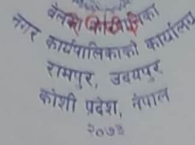 नगर कार्यपालिकाको कार्यालय
रामपुर, उदयपुर
कोशी प्रदेश, नेपाल
२०७३